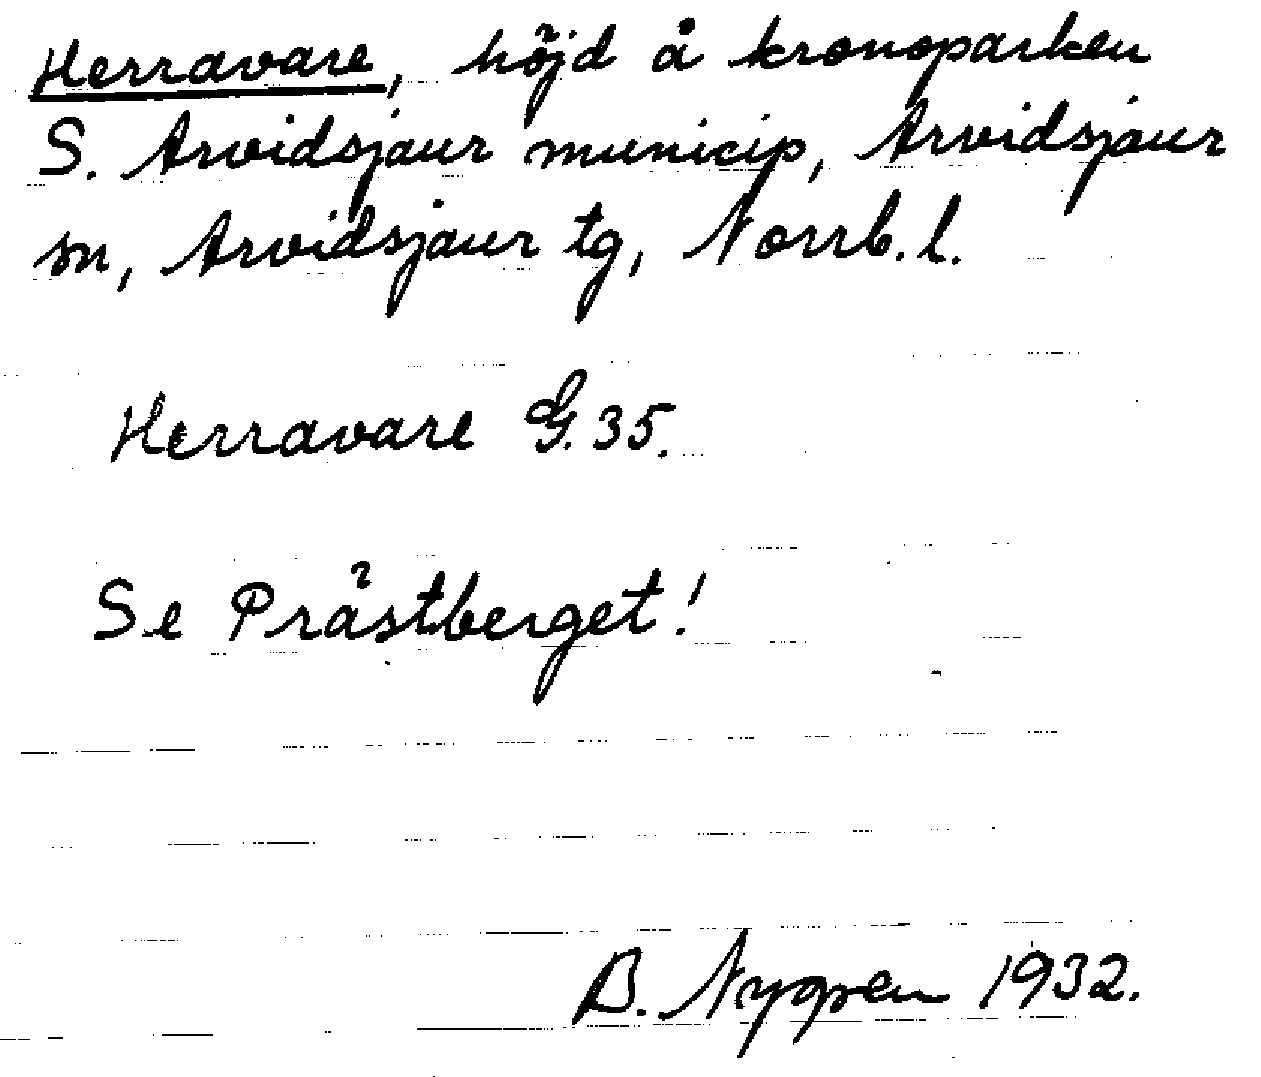 Herravare, höjd å kronoparken
S. Arvidsjaur municip, Arvidsjaur
sn, Arvidsjaur tg, Norrb. l.
Herravare G. 35.
Se Prästberget!
B. Nygren 1932.